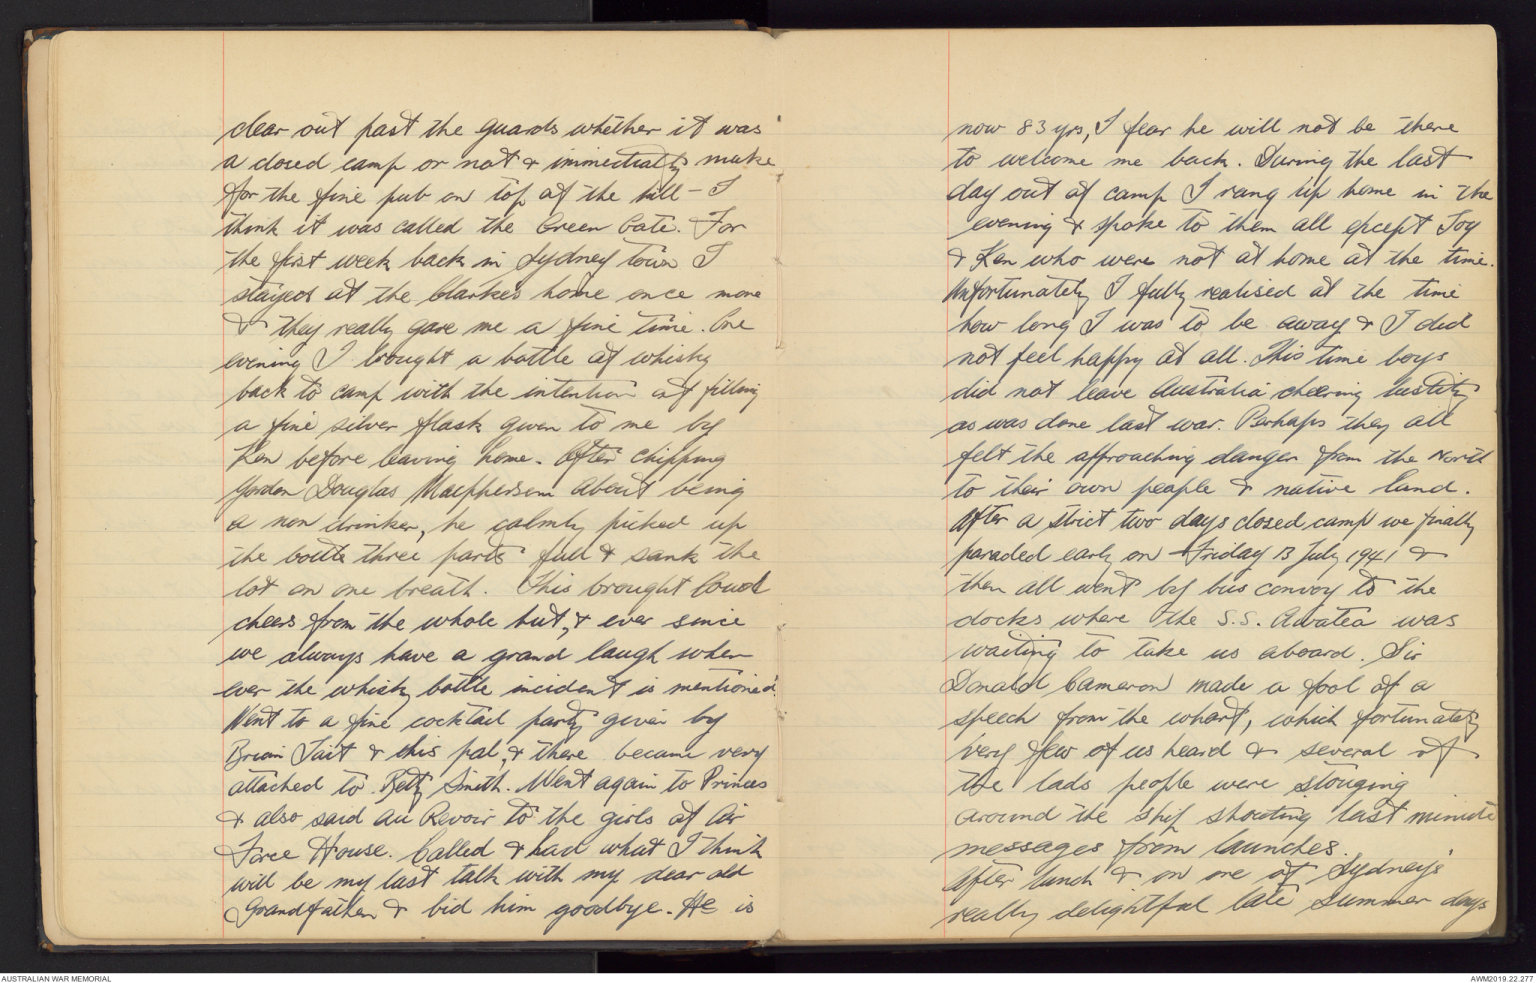 clear out past the guards whether it was
a closed camp or not & immediately make
for the fine pub on top of the hill - I
think it was called the Green Gate. For
the first week back in Sydney town I
stayed at the Clarkes home once more
& they really gave me a fine time. One
evening I brought a bottle of whisky
back to camp with the intention of filling
a fine silver flask given to me by
Ken before leaving home. After chipping
Gordon Douglas Macpherson about being
a non drinker, he calmly picked up
the bottle three parts full & sank the
lot in one breath. This brought loud
cheers from the whole hut, & ever since
we always have a grand laugh when
ever the whisky bottle incident is mentioned.
Went to a fine cocktail party given by
Brian Tait & his pal, & there became very
attached to Betty Smith. Went again to Princes
& also said Au Revoir to the girls of Air
Force House. Called & had what I think
will be my last talk with my dear old
Grandfather & bid him goodbye. He is
now 83 yrs, I fear he will not be there
to welcome me back. During the last
day out of camp I rang up home in the
evening & spoke to them all except Joy
& Ken who were not at home at the time.
Unfortunately I fully realised at the time
how long I was to be away & I did
not feel happy at all. This time boys
did not leave Australia cheering lustily
as was done last war. Perhaps they all
felt the approaching danger from the North
to their own people & native land.
After a strict two days closed camp we finally
paraded early on Friday 13 July 1941 &
then all went by bus convoy to the
docks where the S.S. Awatea was
waiting to take us aboard. Sir
Donald Cameron made a fool of a
speech from the wharf, which fortunately
very few of us heard & several of
the lads people were stouging
around the ship shouting last minute
messages from launches.
After lunch & on one of Sydney's
really delightful late summer days
AUSTRALIAN WAR MEMORIAL
AWM2019.22.277